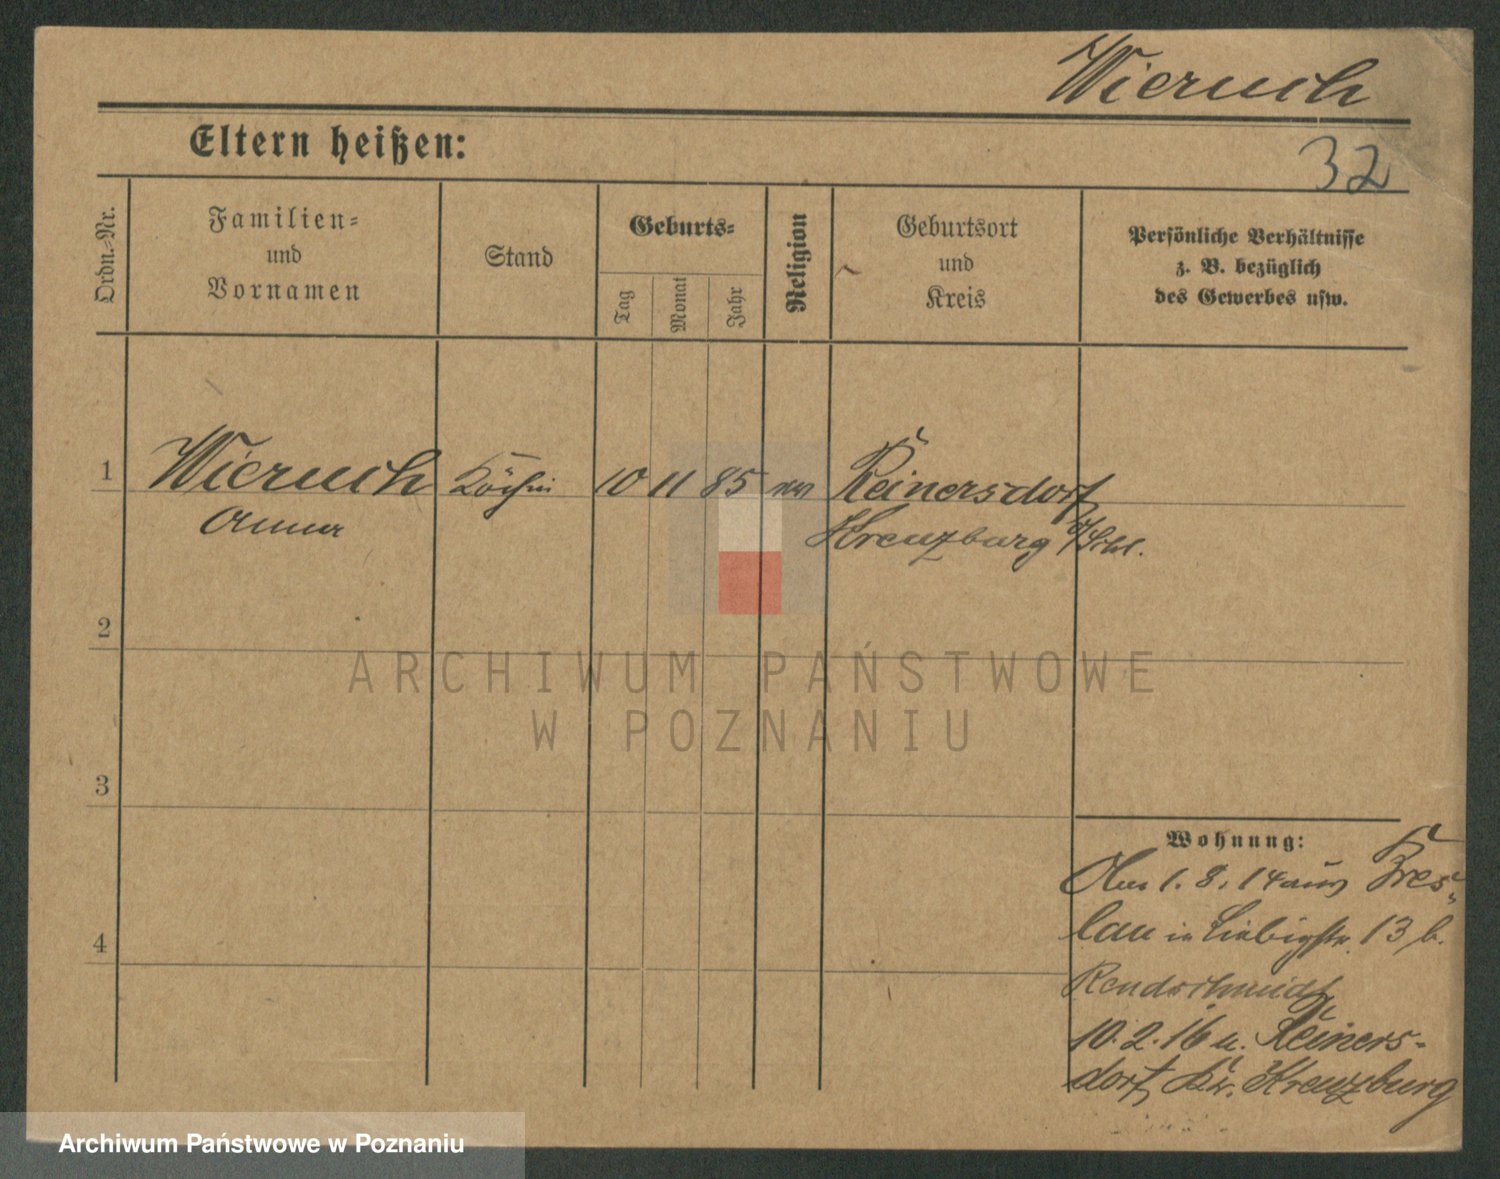 Wieruch
Eltern heißen:
32
Ordn.-Nr.
Familien-
und
Vornamen
Stand
Geburts-
Tag
Monat
Jahr
Religion
Geburtsort
und
Kreis
Persönliche Verhältnisse
z. B. bezüglich
des Gewerbes usw.
1
Wieruch Köchin 10 11 85 Reinersdorf
Anna
Kreuzburg o/Schl.
2
ARCHIWUM PAŃSTWOWE
W POZNANIU
3
Wohnung:
Am 1. 8. 14 aus Bres-
lau in Liebigstr. 13 b.
Rendschmidt
4
10. 2. 16 n. Reiners-
dorf, Kr. Kreuzburg
Archiwum Państwowe w Poznaniu